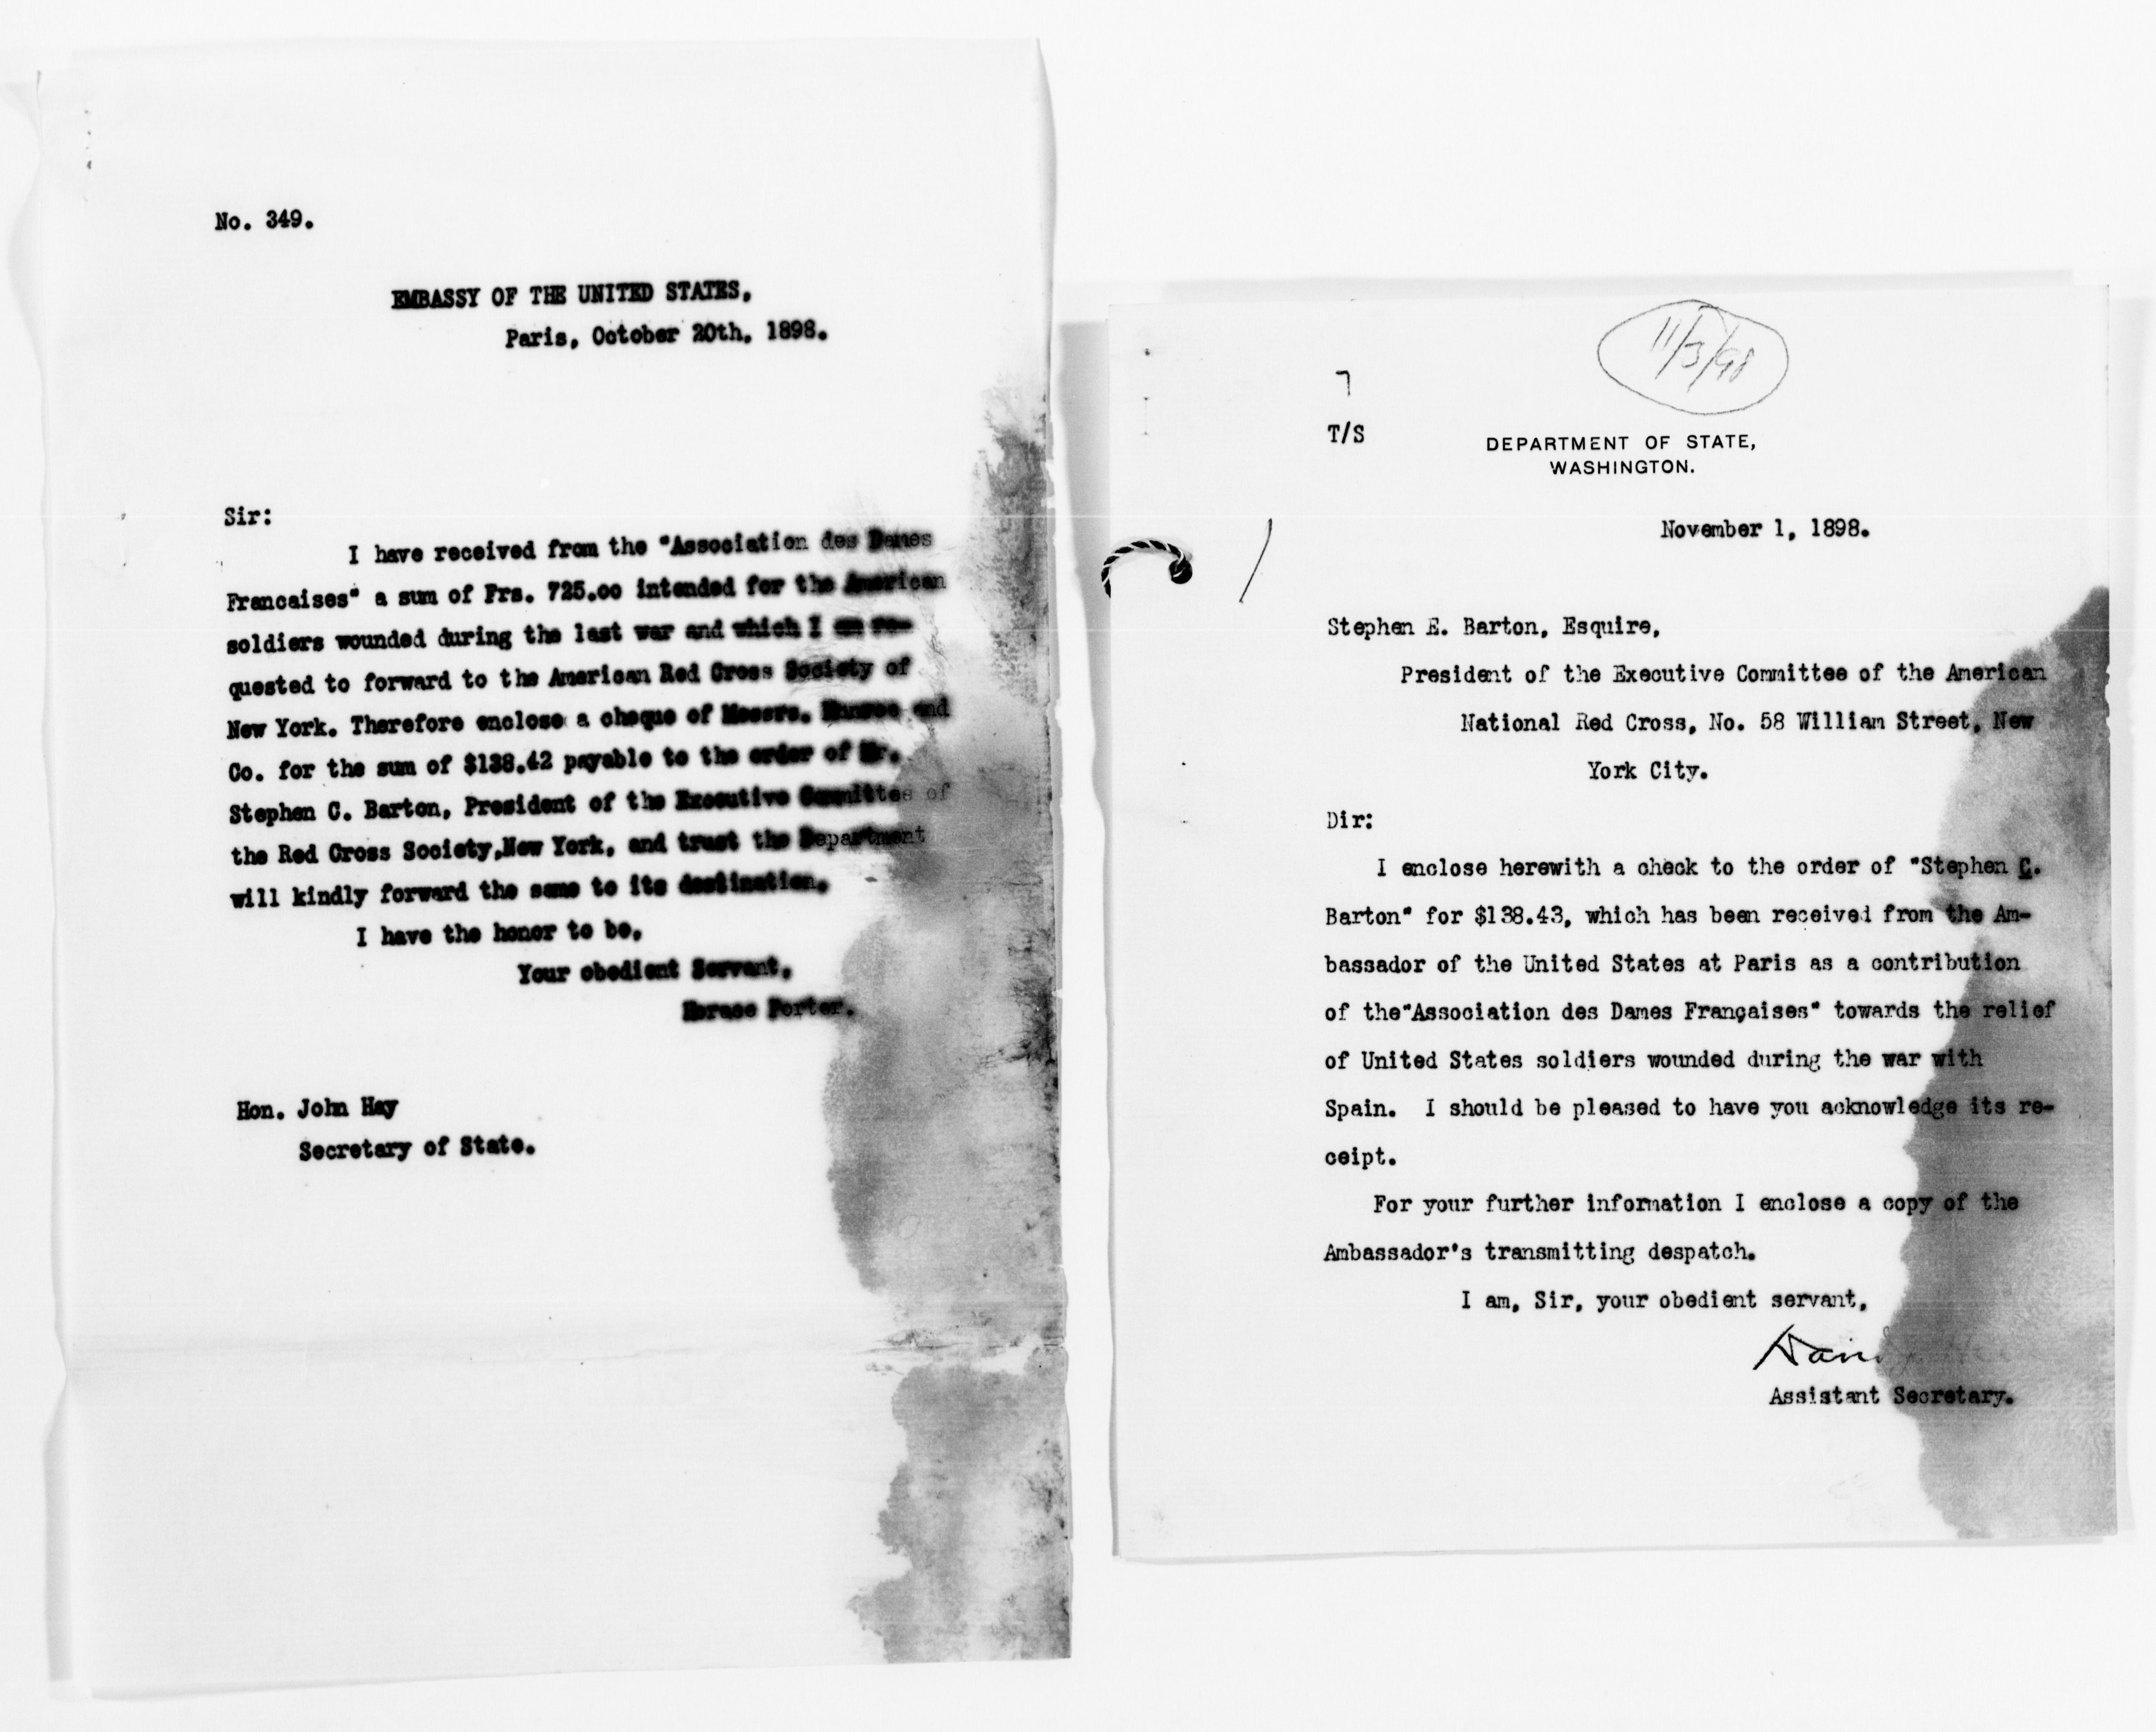 No. 349.
EMBASSY OF THE UNITED STATES,
Paris, October 20th, 1898.
Sir:
I have received from the "Association des Dames
Francaises" a sum of Frs. 725.00 intended for the American
soldiers wounded during the last war and which I am re-
quested to forward to the American Red Cross Society of
New York. Therefore enclose a cheque of Messrs. Munroe and
Co. for the sum of $138.42 payable to the order of Mr.
Stephen C. Barton, President of the Executive Committee of
the Red Cross Society,New York, and trust the Department
will kindly forward the same to its destination.
I have the honor to be,
Your obedient Servant,
Horace Porter.
Hon. John Hay
Secretary of State.
11/3/98
T/S
DEPARTMENT OF STATE,
WASHINGTON.
November 1, 1898.
Stephen E. Barton, Esquire,
President of the Executive Committee of the American
National Red Cross, No. 58 William Street, New
York City.
Dir:
I enclose herewith a check to the order of "Stephen C.
Barton" for $138.43, which has been received from the Am-
bassador of the United States at Paris as a contribution
of the"Association des Dames Françaises" towards the relief
of United States soldiers wounded during the war with
Spain. I should be pleased to have you acknowledge its re-
ceipt.
For your further information I enclose a copy of the
Ambassador's transmitting despatch.
I am, Sir, your obedient servant,
Assistant Secretary.